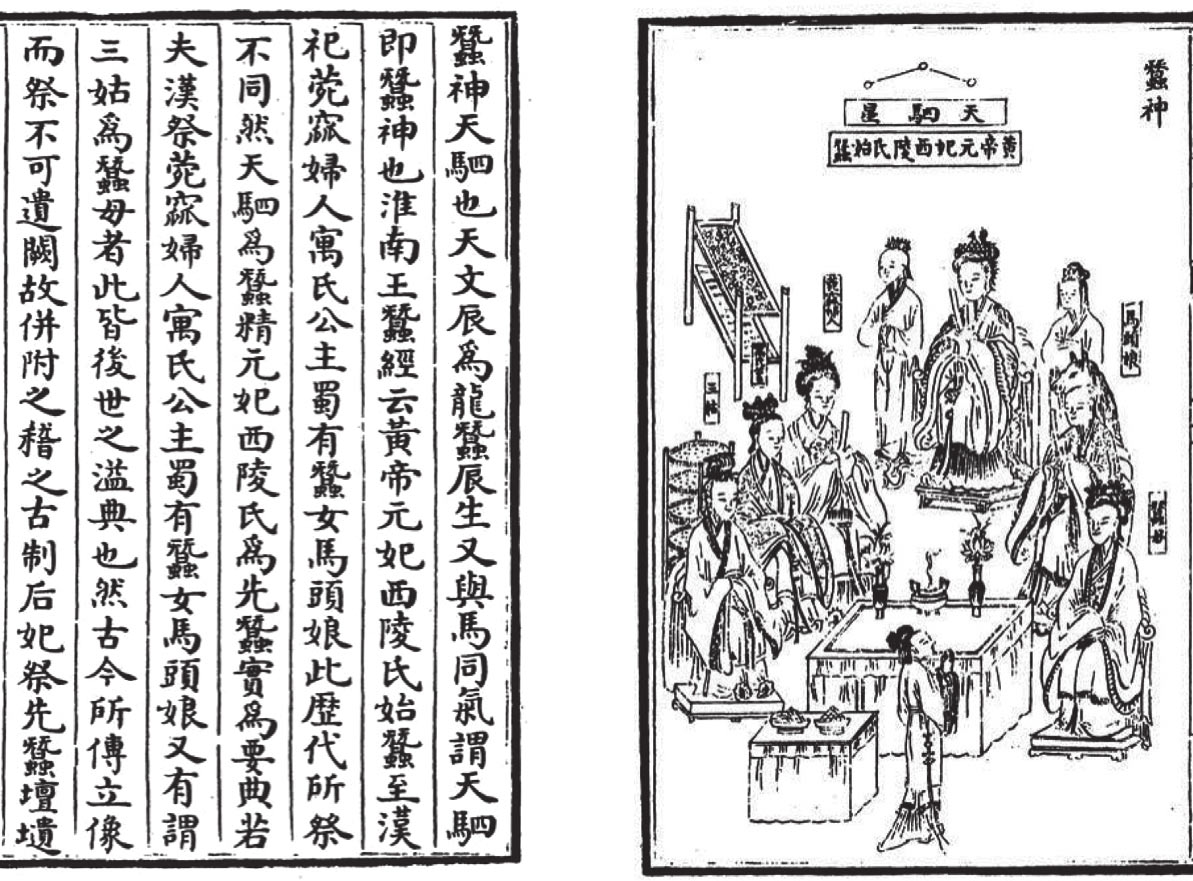 蠶神
天駟星
黃帝元妃西陵氏始蠶
馬頭娘
蠶母
菀窳婦人
三姑
蠶神天駟也天文辰爲龍蠶辰生又與馬同氣謂天駟
即蠶神也淮南王蠶經云黃帝元妃西陵氏始蠶至漢
祀菀窳婦人寓氏公主蜀有蠶女馬頭娘此歷代所祭
不同然天駟爲蠶精元妃西陵氏爲先蠶實爲要典若
夫漢祭菀窳婦人寓氏公主蜀有蠶女馬頭娘又有謂
三姑爲蠶母者此皆後世之溢典也然古今所傳立像
而祭不可遺闕故併附之稽之古制后妃祭先蠶壇壝